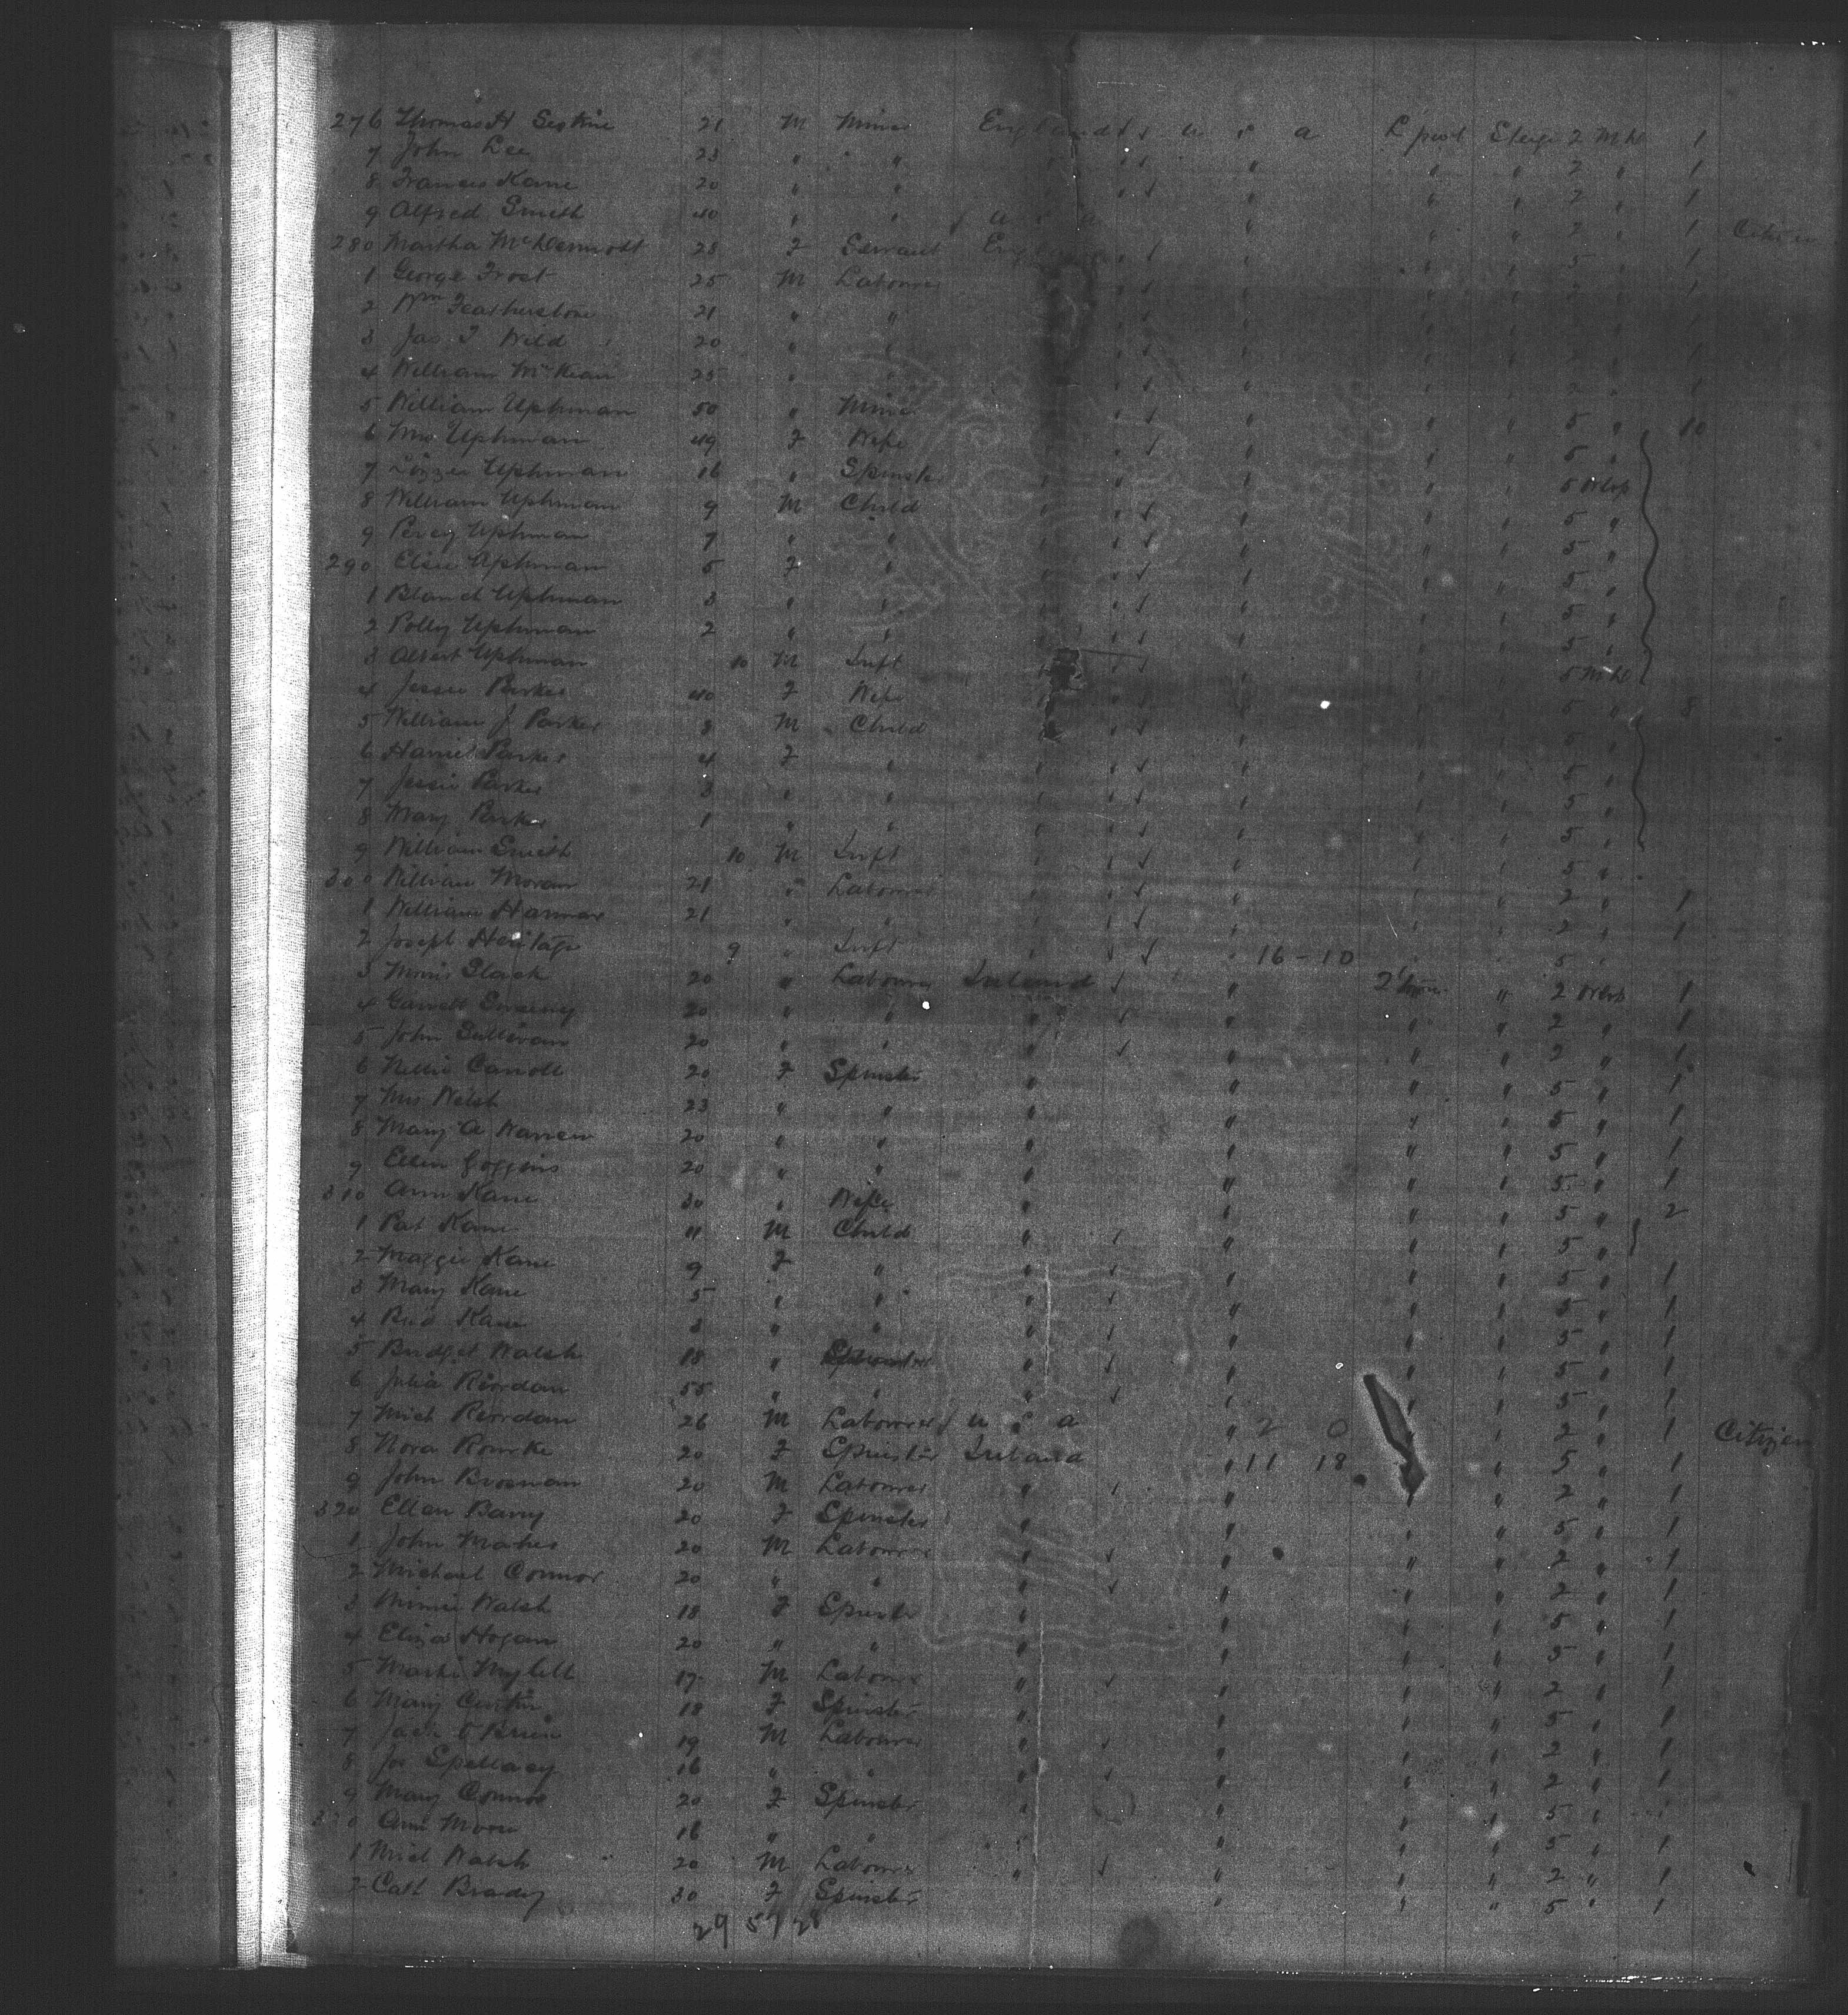 276 Thomas H Serkine 21 M Miner England U S A L'pool Steige 2 Mhl 1
7 John Lee 23 " " " " " 2 " 1
8 Frances Kane 20 " " " " " 2 " 1
9 Alfred Smith 40 " " U S A " " " 2 " 1 Citizen
280 Martha McDermott 28 F Servant England " " " 5 " 1
1 George Frost 25 M Labourer " " " 2 " 1
2 Wm Featherstone 21 " " " "
3 Jas T Wild 20 " " " "
4 William McKean 25 " " " "
5 William Uphman 50 " Miner " " " " 5 " 10
6 Mrs Uphman 49 F Wife " " " " 5 "
7 Lizzie Uphman 16 " Spinster " " " " 5
8 William Uphman 9 M Child " " " " 5 "
9 Percy Uphman 7 " " " " " " 5 "
290 Elsie Uphman 5 F " " " " " 5 "
1 Blanch Uphman 3 " " " " " " 5 "
2 Polly Uphman 2 " " " " " " 5 "
3 Albert Uphman 10 M Inft " " " " 5 Mhl
4 Jessie Parker 40 F Wife " " " " 5 " 8
5 William J Parker 8 M Child " " " " 5 "
6 Harriet Parker 4 F " " " " " 5 "
7 Jessie Parker 3 " " " " " " 5 "
8 Mary Parker 1 " " " " " " 5 "
9 William Smith 10 M Inft " " " " 5 "
300 William Moran 21 " Labourer " " " " 2 " 1
1 William Hanmar 21 " " " " " " 2 " 1
2 Joseph Heritage 9 " Inft " " 16-10 " " 5 "
3 Morris Slack 20 " Labourer Ireland " " 2 1
4 Garrett 20 " " " " " " 2 " 1
5 John Sullivan 20 " " " " " " 2 " 1
6 Nellie Carroll 20 F Spinster " " " " 5 " 1
7 Mrs Welsh 23 " " " " " " 5 " 1
8 Mary A Warren 20 " " " " " " 5 " 1
9 Ellen Goggins 20 " " " " " " 5 " 1
310 Ann Kane 30 " Wife " " " " 5 " 2
1 Pat Kane 11 M Child " " " " 5 "
2 Maggie Kane 9 F " " " " " 5 " 1
3 Mary Kane 5 " " " " " " 5 " 1
4 Kane 3 " " " " " " 5 " 1
5 Bridget Walsh 18 " Spinster " " " " 5 " 1
6 Julia Riordan 55 " " " " " " 5 " 1
7 Mich Riordan 26 M Labourer U S A " 2 0 " 2 " 1 Citizen
8 Nora Rourke 20 F Spinster Ireland " 11 18 " 5 " 1
9 John Brosnan 20 M Labourer " " " " 2 " 1
320 Ellen Barry 20 F Spinster " " " " 5 " 1
1 John Maher 20 M Labourer " " " " 2 " 1
2 Michael Connor 20 " " " " " " 2 " 1
3 Minnie Walsh 18 F Spinster " " " " 5 " 1
4 Eliza Hogan 20 " " " " " " 5 " 1
5 Myllett 17 M Labourer " " " " 2 " 1
6 Mary Curtin 18 F Spinster " " " " 5 " 1
7 Jack O'Brien 19 M Labourer " " " " 2 " 1
8 Joe Spellacy 16 " " " " " " 2 " 1
9 Mary Connor 20 F Spinster " " " " 5 " 1
330 Ann Moore 16 " " " " " " 5 " 1
1 Mich Walsh 20 M Labourer " " " " 2 " 1
2 Cath Brady 30 F Spinster " " " 5 " 1
29 57 28